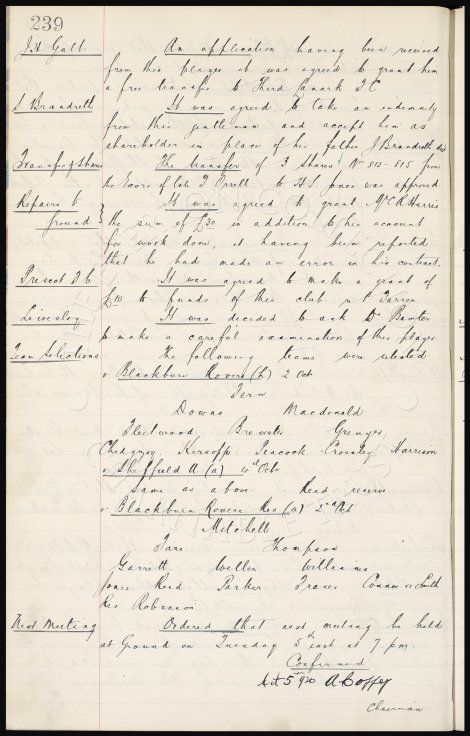 239
J. H. Galt. An application having been received
from this player it was agreed to grant him
a free transfer to Third Lanark F C
S. Brandreth It was agreed to take an indemnity
from this gentleman and accept him as
shareholder in place of his father J Brandreth decd
Transfer of Shares The transfer of 3 shares Nos 813-815 from
the Exors of late T. Orrell to H S Jones was approved
Repairs to ground } It was agreed to grant Mr C R Harris
the sum of £30 in addition to his account
for work done, it having been reported
that he had made an error in his contract.
Prescot F.C. It was agreed to make a grant of
£10 to funds of this club
Livesley It was decided to ask Dr Baxter
to make a careful examination of this player
Team Selections The following teams were selected
v Blackburn Rovers (h) 2 Oct
Fern
Downs Macdonald
Fleetwood Brewster Grenyer
Chedgzoy Kirsopp Peacock Crossley Harrison
v Sheffield U (a) 4th Oct
Same as above. Reid reserve
v. Blackburn Rovers Res (a) 2nd Oct
Mitchell
Fare Thompson
Garrett Weller Williams
Jones Reid Parker Fraser Connor or Smith
Res Robinson
Next Meeting Ordered that next meeting be held
at Ground on Tuesday 5th inst at 7 pm.
Confirmed
Oct 5th 1920 A Coffey
Chairman